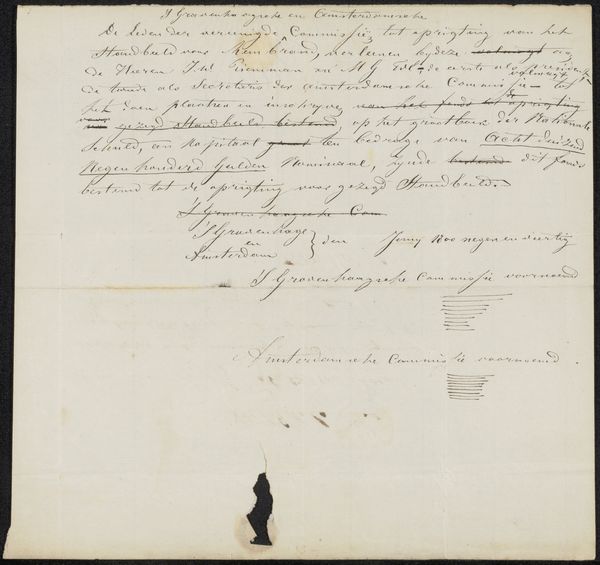 'S Gravenhaagsche en Amsterdamsche
De leden der vereenigde Commissie, tot oprigting van het
Standbeeld voor Rembrand, verleenen bij deze volmagt aan
de Heeren J. W. Pieneman en M G de eerste als president
de tweede als Secretaris der Amsterdamsche Commissie tot
volmagt
het doen plaatsen en inschrijven van het fonds tot oprigting
van gezegd Standbeeld bestemd, op het grootboek der Nationale
Schuld, een Kapitaal groot ten bedrage van Acht duizend
Negenhonderd Gulden Nominaal, zijnde bestemd dit fonds
bestemd tot de oprigting voor gezegd Standbeeld.
'S Gravenhaagsche Com
'S Gravenhage
en
Amsterdam } den negen en veertig
'S Gravenhaagsche Commissie voornoemd
Amsterdamsche Commissie voornoemd.